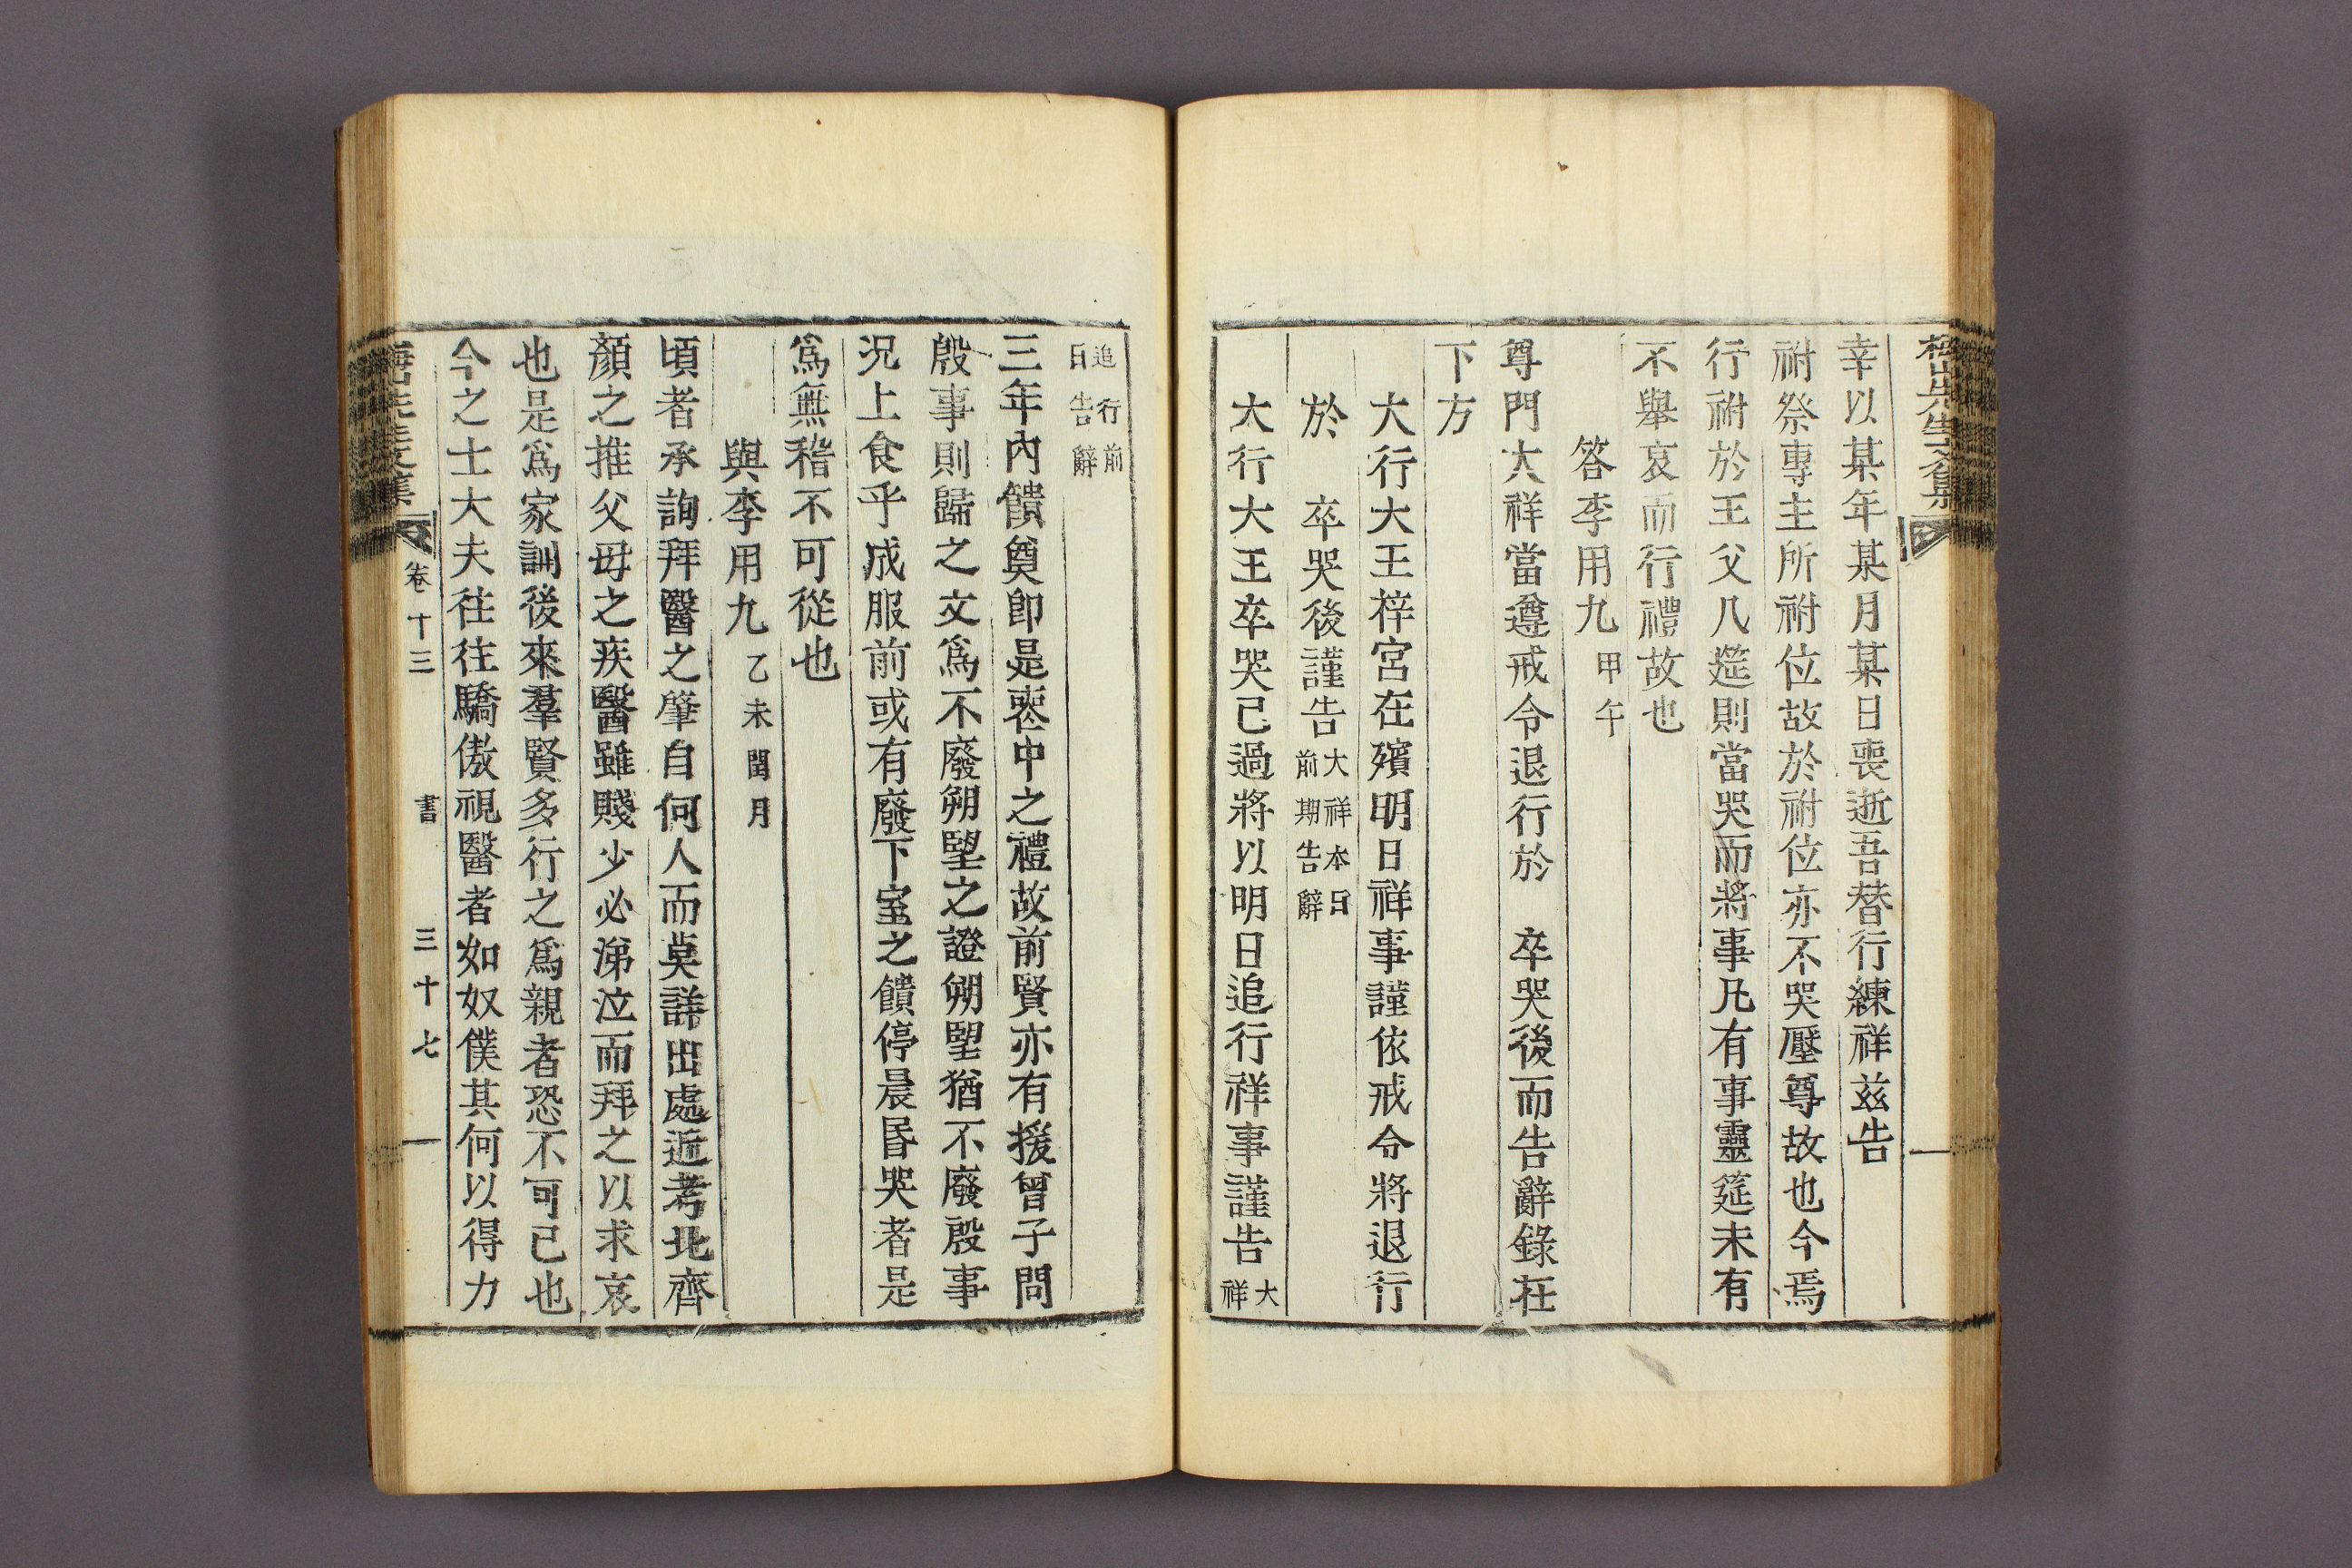 梅山先生文集
幸以某年某月某日喪逝吾替行練祥玆告
祔祭專主所祔位故於祔位亦不哭壓尊故也今焉
行祔於王父几筵則當哭而將事凡有事靈筵未有
不舉哀而行禮故也
答李用九 甲午
尊門大祥當遵戒令退行於 卒哭後而告辭錄在
下方
大行大王梓宮在殯明日祥事謹依戒令將退行
於 卒哭後謹告 大祥本日前期告辭
大行大王卒哭已過將以明日追行祥事謹告 大祥
追行前日告辭
三年內饋奠卽是喪中之禮故前賢亦有援曾子問
殷事則歸之文爲不廢朔望之證朔望猶不廢殷事
況上食乎成服前或有廢下室之饋停晨昏哭者是
爲無稽不可從也
與李用九 乙未閏月
頃者承詢拜醫之肇自何人而莫詳出處近考北齊
顏之推父母之疾醫雖賤少必涕泣而拜之以求哀
也是爲家訓後來羣賢多行之爲親者恐不可已也
今之士大夫往往驕傲視醫者如奴僕其何以得力
梅山先生文集 卷十三 書 三十七